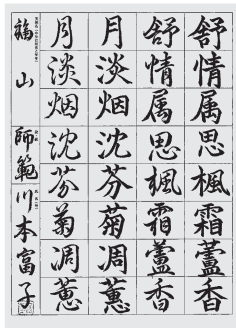 舒情属思楓霜蘆香
舒情属思楓霜蘆香
月淡烟沈芬菊凋蕙
月淡烟沈芬菊凋蕙
福山 師範 川本富子